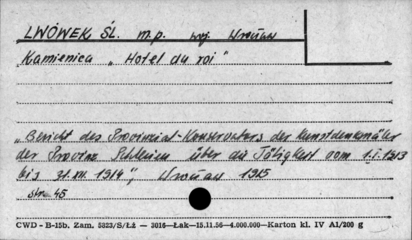 LWÓWEK ŚL. m.p. woj. Wrocław
Kamienica „Hotel du roi"
„Bericht des Provinzial-Konservators der Kunstdenkmäler
der Provinz Schlesien über die Tätigkeit vom 1.I.1913
bis 31.XII.1914", Wrocław 1915
str. 45
CWD - B-15b. Zam. 5823/S/Łż — 3016—Łak—15.11.56—4.000.000—Karton kl. IV A1/200 g